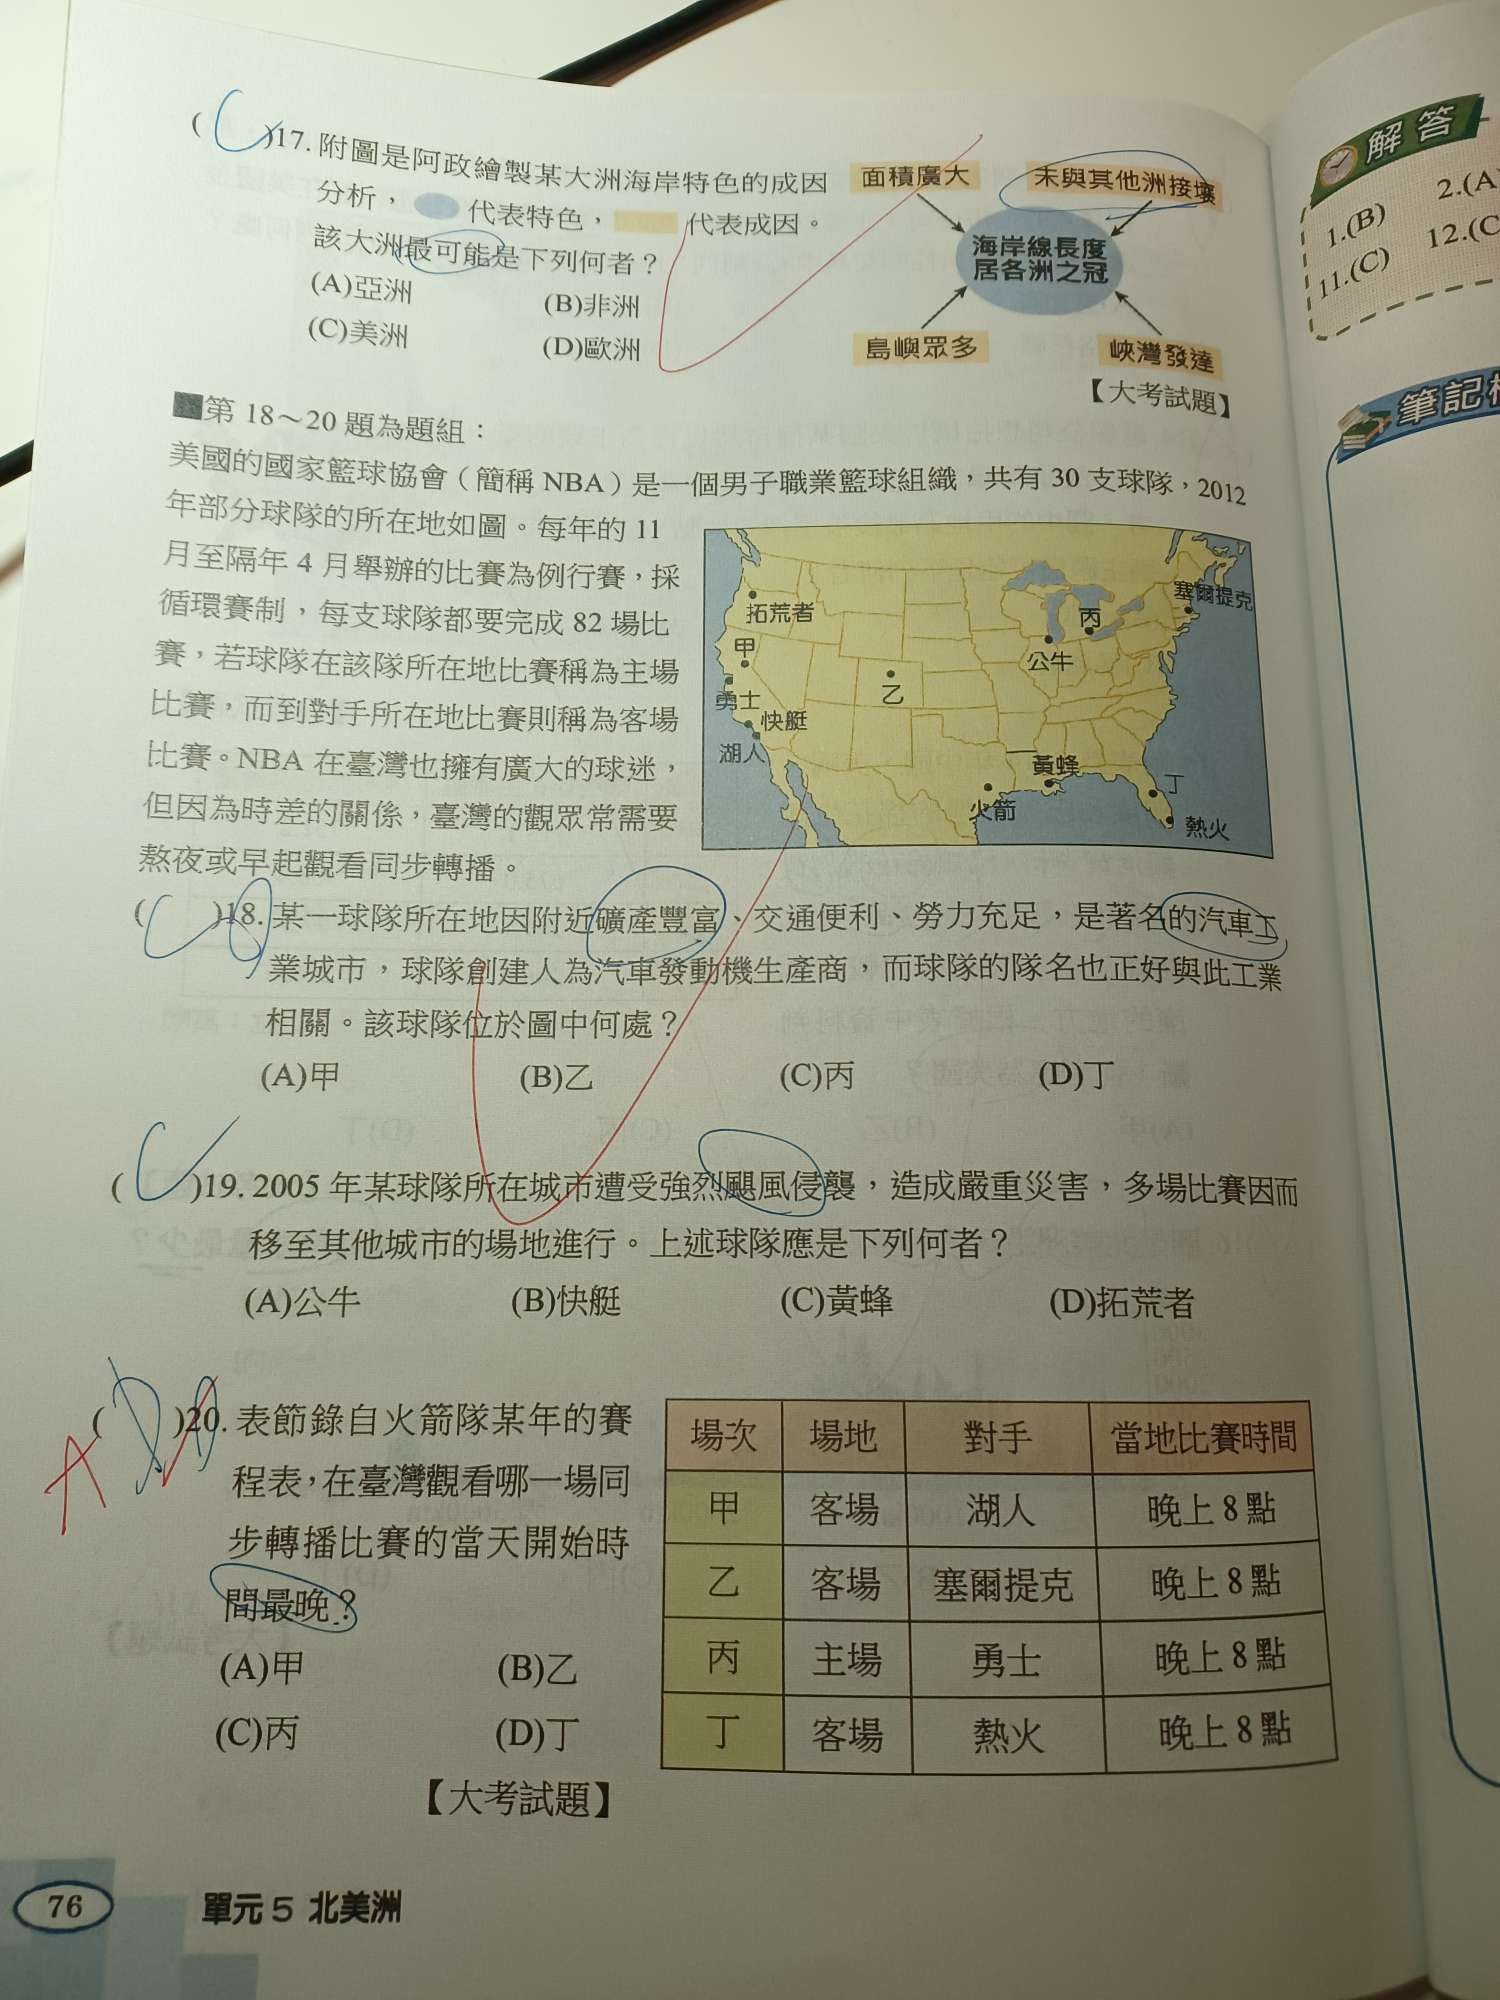 ( C )17. 附圖是阿政繪製某大洲海岸特色的成因
分析， 代表特色， 代表成因。
該大洲最可能是下列何者？
(A)亞洲 (B)非洲
(C)美洲 (D)歐洲
面積廣大 未與其他洲接壤
海岸線長度
居各洲之冠
島嶼眾多 峽灣發達
【大考試題】
第 18～20 題為題組：
美國的國家籃球協會（簡稱 NBA）是一個男子職業籃球組織，共有 30 支球隊，2012
年部分球隊的所在地如圖。每年的 11
月至隔年 4 月舉辦的比賽為例行賽，採
循環賽制，每支球隊都要完成 82 場比
賽，若球隊在該隊所在地比賽稱為主場
比賽，而到對手所在地比賽則稱為客場
比賽。NBA 在臺灣也擁有廣大的球迷，
但因為時差的關係，臺灣的觀眾常需要
熬夜或早起觀看同步轉播。
塞爾提克
拓荒者
丙
甲
公牛
乙
勇士
快艇
湖人
黃蜂
丁
火箭
熱火
( C )18. 某一球隊所在地因附近礦產豐富、交通便利、勞力充足，是著名的汽車工
業城市，球隊創建人為汽車發動機生產商，而球隊的隊名也正好與此工業
相關。該球隊位於圖中何處？
(A)甲 (B)乙 (C)丙 (D)丁
( C )19. 2005 年某球隊所在城市遭受強烈颶風侵襲，造成嚴重災害，多場比賽因而
移至其他城市的場地進行。上述球隊應是下列何者？
(A)公牛 (B)快艇 (C)黃蜂 (D)拓荒者
A
( )20. 表節錄自火箭隊某年的賽
程表，在臺灣觀看哪一場同
步轉播比賽的當天開始時
間最晚？
(A)甲 (B)乙
(C)丙 (D)丁
【大考試題】
場次 場地 對手 當地比賽時間
甲 客場 湖人 晚上 8 點
乙 客場 塞爾提克 晚上 8 點
丙 主場 勇士 晚上 8 點
丁 客場 熱火 晚上 8 點
76 單元 5 北美洲
解答
1.(B) 2.(A
11.(C) 12.(C
筆記